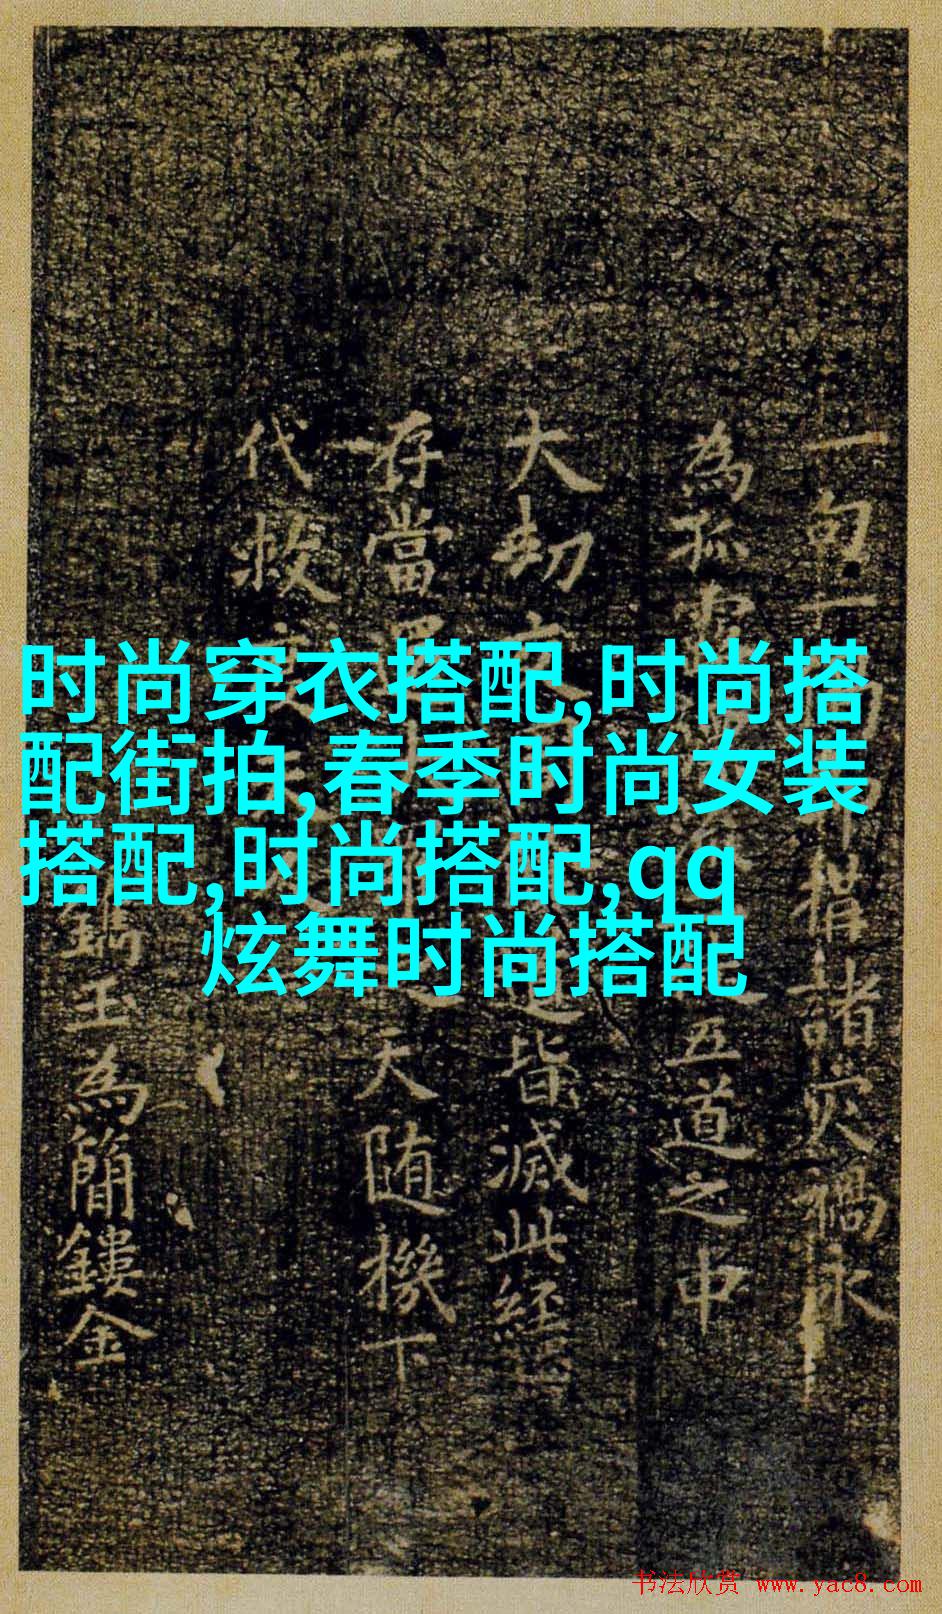 时尚穿衣搭配,时尚搭
配街拍,春季时尚女装
搭配,时尚搭配,qq
炫舞时尚搭配
一句一諸灾禍永
為孤五道之中
大劫交皆滅此經
存當天随機下
代救
玉為簡鏤金
书法欣赏 www.yac8.com